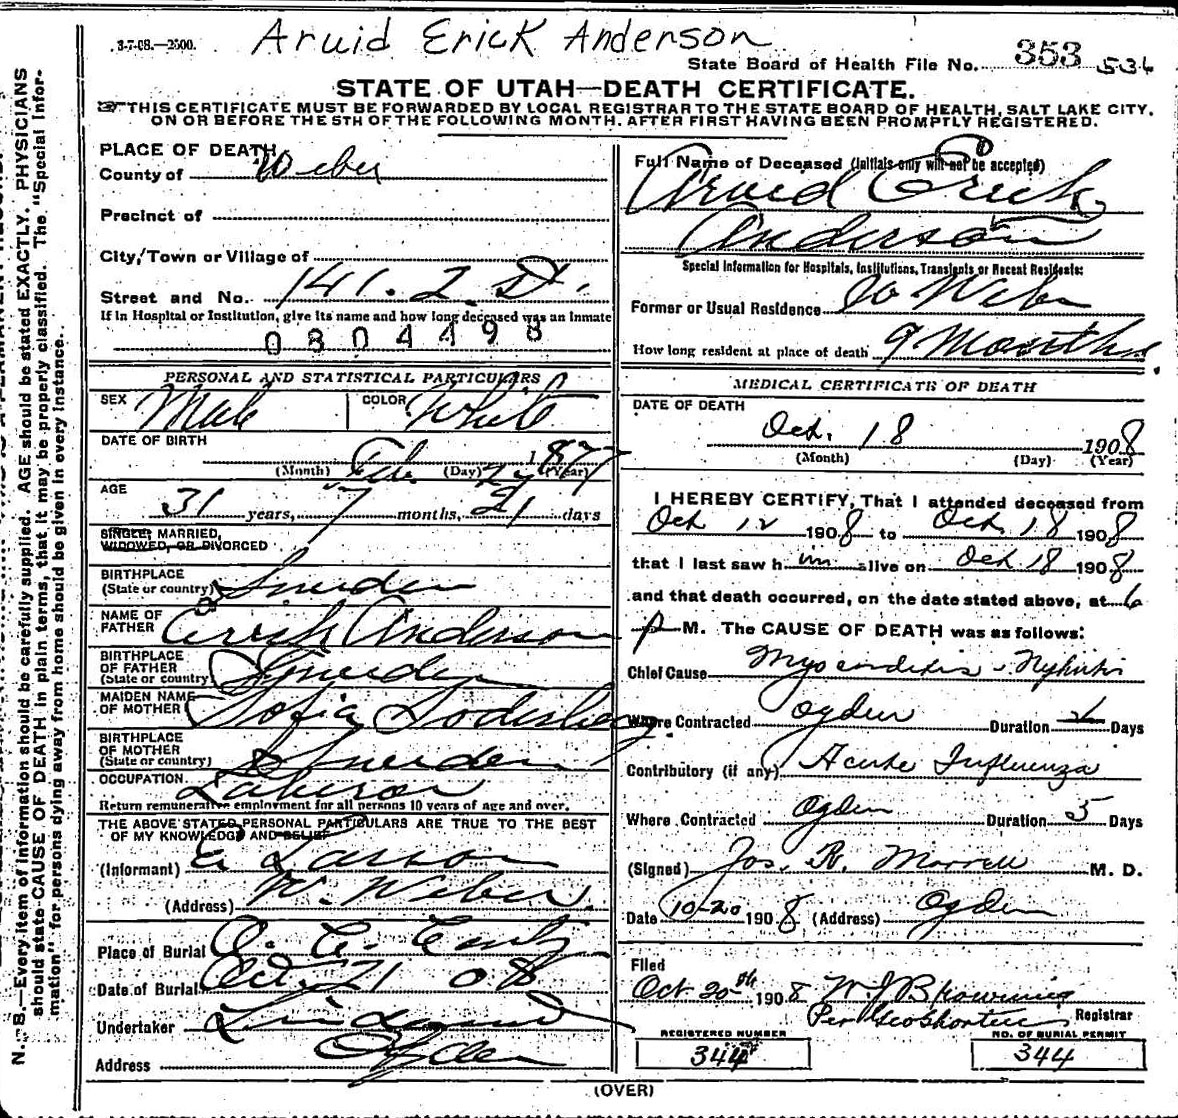 3-7-08.—2500.
Aruid Erick Anderson
State Board of Health File No. 353 536
STATE OF UTAH—DEATH CERTIFICATE.
THIS CERTIFICATE MUST BE FORWARDED BY LOCAL REGISTRAR TO THE STATE BOARD OF HEALTH, SALT LAKE CITY.
ON OR BEFORE THE 5TH OF THE FOLLOWING MONTH. AFTER FIRST HAVING BEEN PROMPTLY REGISTERED.
PLACE OF DEATH
County of Weber
Precinct of
City, Town or Village of
Street and No. 141. 2 St.
If in Hospital or Institution, give its name and how long deceased was an inmate
0804498
PERSONAL AND STATISTICAL PARTICULARS
SEX Male COLOR White
DATE OF BIRTH
(Month) Feb. (Day) 27 1877 (Year)
AGE
31 years, 7 months, 21 days
SINGLE, MARRIED,
WIDOWED, OR DIVORCED
BIRTHPLACE
(State or country) Sweden
NAME OF
FATHER Errick Anderson
BIRTHPLACE
OF FATHER
(State or country) Sweden
MAIDEN NAME
OF MOTHER Sofia Soderberg
BIRTHPLACE
OF MOTHER
(State or country) Sweden
OCCUPATION Laborer
Return remunerative employment for all persons 10 years of age and over.
THE ABOVE STATED PERSONAL PARTICULARS ARE TRUE TO THE BEST
OF MY KNOWLEDGE AND BELIEF
(Informant) Larson
(Address) W. Weber.
Place of Burial
Date of Burial Oct. 21 08
Undertaker
Address Ogden
Full Name of Deceased (Initials only will not be accepted)
Arvid Erick
Anderson
Special Information for Hospitals, Institutions, Transients or Recent Residents:
Former or Usual Residence W Weber
How long resident at place of death 9 Months
MEDICAL CERTIFICATE OF DEATH
DATE OF DEATH
Oct. 18 1908
(Month) (Day) (Year)
I HEREBY CERTIFY, That I attended deceased from
Oct 12 1908 to Oct. 18 1908
that I last saw him alive on Oct 18 1908
and that death occurred, on the date stated above, at 6
p M. The CAUSE OF DEATH was as follows:
Chief Cause Myocarditis - Nephritis
Where Contracted Ogden Duration Days
Contributory (if any) Acute Influenza
Where Contracted Ogden Duration 5 Days
(Signed) Jos. R. Morrell M. D.
Date 10-20 1908 (Address) Ogden
Filed
Oct. 20th 1908 W J Browning
Registrar
REGISTERED NUMBER
344
NO. OF BURIAL PERMIT
344
(OVER)
N. B.—Every item of information should be carefully supplied. AGE should be stated EXACTLY. PHYSICIANS
should state CAUSE OF DEATH in plain terms, that it may be properly classified. The "Special Infor-
mation" for persons dying away from home should be given in every instance.